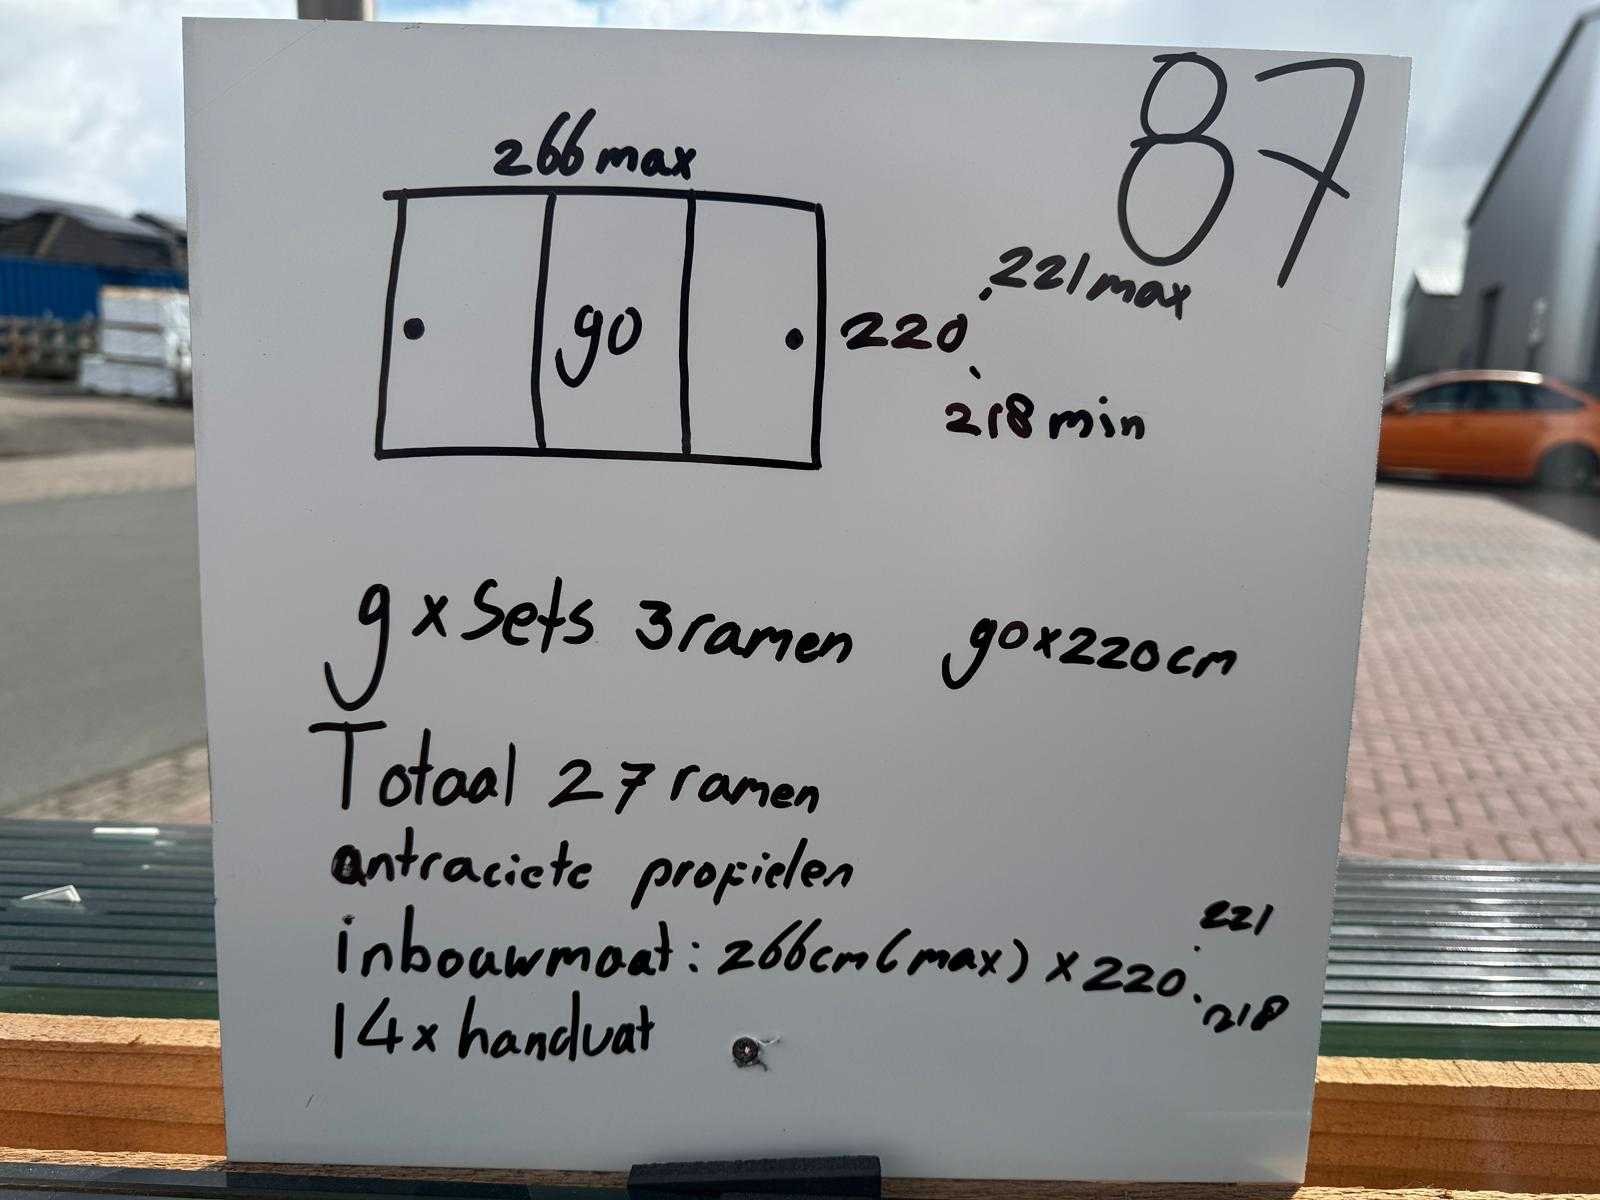 87
266 max
90
220
221 max
218 min
9 x Sets 3 ramen 90x220cm
Totaal 27 ramen
antraciete profielen
inbouwmaat: 266cm (max) x 220
221
218
14x handvat